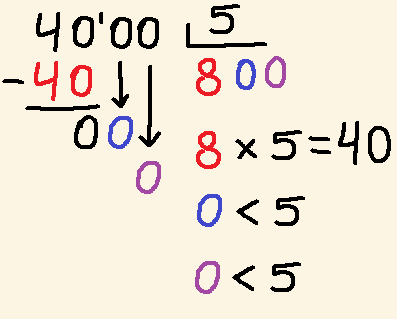 40'00 5
-40 800
00
8 × 5 = 40
0
0 < 5
0 < 5